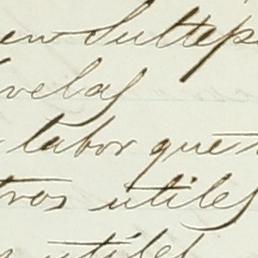 en Sultep
velas
labor que
tros utiles
utiles